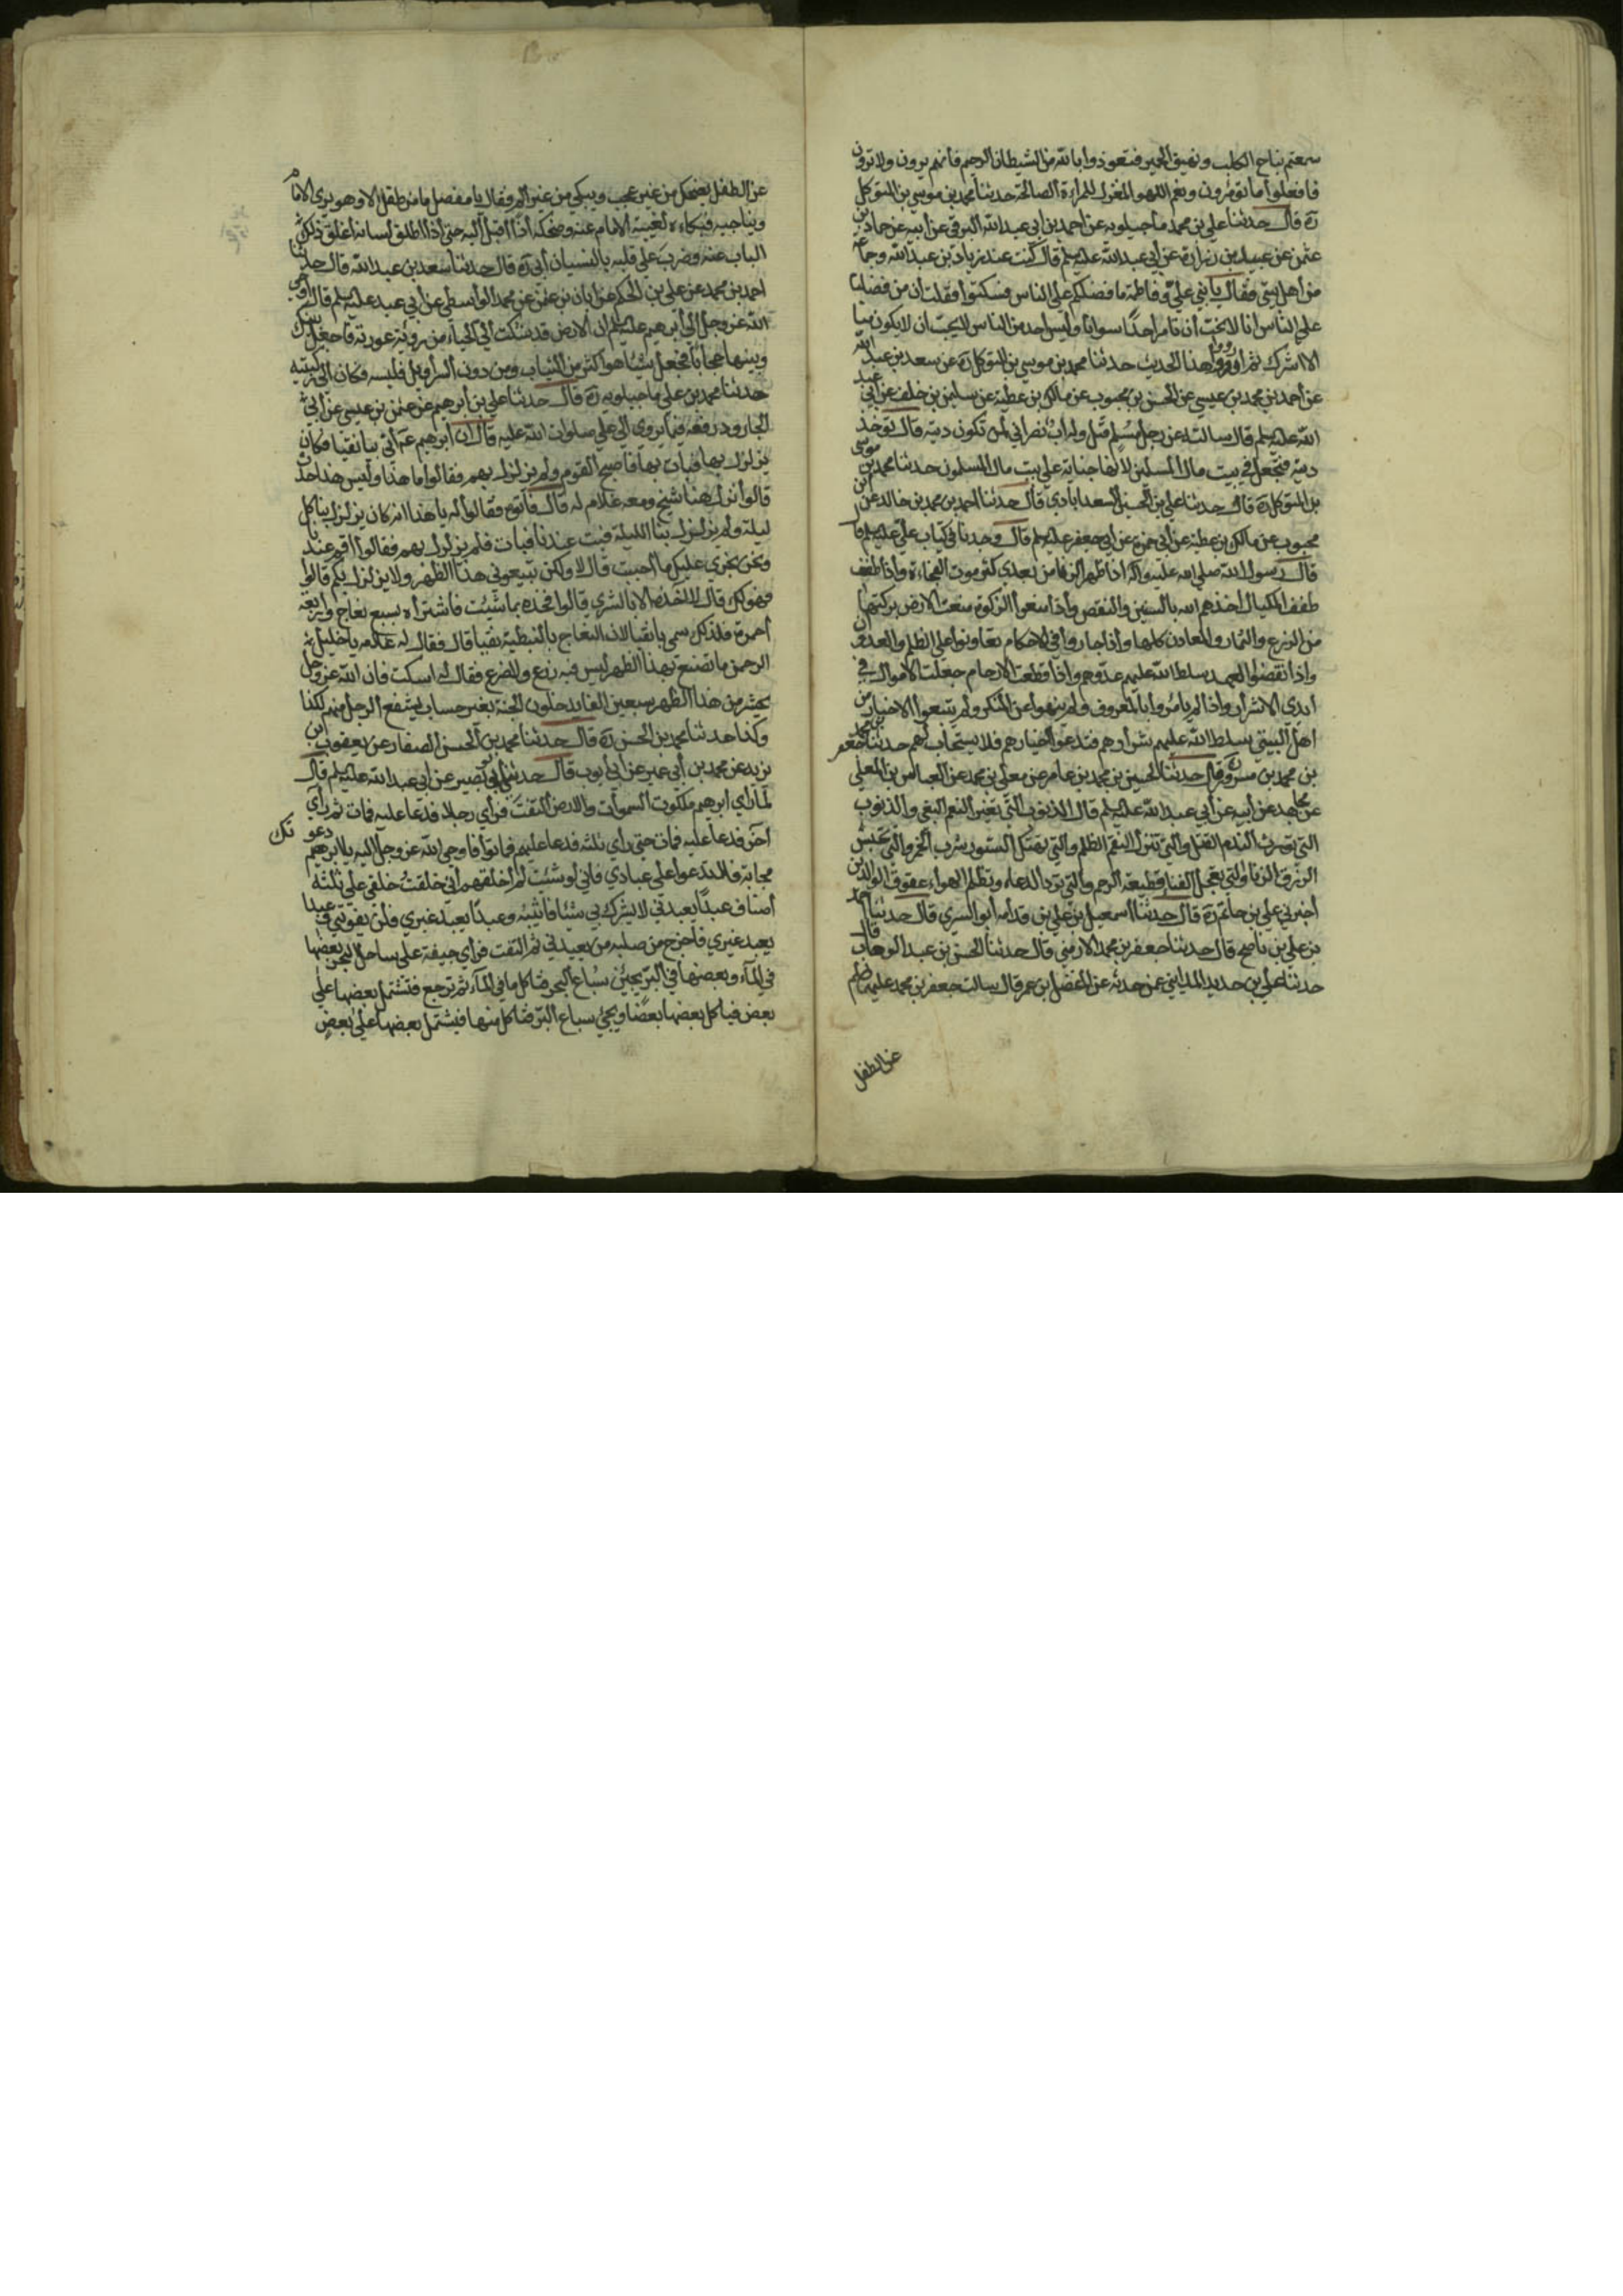 سمعتم نباح الكلب ونهيق الحمير فتعوذوا بالله من الشيطان الرجيم فانهم يرون ولا ترون
فافعلوا ما تؤمرون ونعم اللهو المغزل للمراة الصالحة حدثنا محمد بن موسى بن المتوكل
ره قال حدثنا علي بن محمد ماجيلويه عن احمد بن ابي عبد الله البرقي عن ابيه عن حماد بن
عثمن عن عبيد بن زرارة عن ابي عبد الله عليه السلم قال كنت عند زياد بن عبد الله وجماعة
من اهل بيتي فقال يا بني علي وفاطمة ما فضلكم على الناس فسكتوا فقلت ان من فضلنا
على الناس انا لا نحب ان نكون من احد سوانا وليس احد من الناس لا يحب ان لا يكون منا
الا اشرك ثم قال ارووا هذا الحديث حدثنا محمد بن موسى بن المتوكل ره عن سعد بن عبد الله
عن احمد بن محمد بن عيسى عن الحسن بن محبوب عن مالك بن عطية عن سليمن بن خلف عن ابي عبد
الله عليه السلم قال سالته عن رجل مسلم قتل وله اب نصراني لمن تكون ديته قال تؤخذ
ديته فتجعل في بيت مال المسلمين لانها جنايته على بيت مال المسلمين حدثنا محمد بن موسى
بن المتوكل ره قال حدثنا علي بن الحسين السعدابادي قال حدثنا احمد بن محمد بن خالد عن ابن
محبوب عن مالك بن عطية عن ابي حمزة عن ابي جعفر عليه السلم قال وجدنا في كتاب علي عليه السلم قال
قال رسول الله صلى الله عليه واله اذا ظهر الزنا من بعدي كثر موت الفجاءة واذا طفف
طفف المكيال اخذهم الله بالسنين والنقص واذا منعوا الزكوة منعت الارض بركتها
من الزرع والثمار والمعادن كلها واذا جاروا في الاحكام تعاونوا على الظلم والعدوان
واذا نقضوا العهد سلط الله عليهم عدوهم واذا قطعت الارحام جعلت الاموال في
ايدي الاشرار واذا لم يامروا بالمعروف ولم ينهوا عن المنكر ولم يتبعوا الاخيار من
اهل البيتي سلط الله عليهم شرارهم فتدعو اخيارهم فلا يستجاب لهم حدثنا جعفر بن محمد
بن محمد بن مسرور قال حدثنا الحسين بن محمد بن عامر عن معلى بن محمد عن العباس بن المعلى
عن مجاهد عن ابيه عن ابي عبد الله عليه السلم قال الذنوب التي تغير النعم البغي والذنوب
التي تورث الندم القتل والتي تنزل النقم الظلم والتي تهتك الستور شرب الخمر والتي تحبس
الرزق الزنا والتي تعجل الفنا قطيعة الرحم والتي ترد الدعاء وتظلم الهواء عقوق الوالدين
اخبرني علي بن حاتم ره قال حدثنا اسمعيل بن علي بن قدامه ابو السري قال حدثنا احمد
بن علي بن ناصح قال حدثنا جعفر بن محمد الارمني قال حدثنا الحسن بن عبد الوهاب قال
حدثنا علي بن حديد المدايني عمن حدثه عن المفضل بن عمر قال سالت جعفر بن محمد عليهما السلم
عن الطفل
عن الطفل يضحك من غير عجب ويبكي من غير الم فقال يا مفضل ما من طفل الا وهو يرى الامام
ويناجيه فبكاءه لغيبة الامام عنه وضحكه اذا اقبل اليه حتى اذا اطلق لسانه اغلق ذلك
الباب عنه وضرب على قلبه بالنسيان ابي ره قال حدثنا سعد بن عبد الله قال حدثنا
احمد بن محمد عن علي بن الحكم عن ابان بن عثمن عن محمد الواسطي عن ابي عبد عليه السلم قال اوحى
الله عز وجل الى ابرهيم عليه السلم ان الارض قد شكت الي الحياء من رؤية عورتك فاجعل بينك
وبينها حجابا فجعل شيئا هو اكثر من الثياب ومن دون السراويل فلبسه فكان الى ركبتيه
حدثنا محمد بن علي ماجيلويه ره قال حدثنا علي بن ابرهيم عن عثمن بن عيسى عن ابي
الجارود رفعه فيما يروى الى علي صلوات الله عليه قال ان ابرهيم ع اتى بانقيا فكان
يزلزل بها فبات بها فاصبح القوم ولم يزلزل بهم فقالوا ما هذا وليس هذا حدث
قالوا نزل هنا شيخ ومعه غلام له قال فاتوه فقالوا له يا هذا انه كان يزلزل بنا كل
ليلة ولم يزلزل بنا الليلة فبت عندنا فبات فلم يزلزل بهم فقالوا اقم عندنا
ونحن نجري عليك ما احببت قال لا ولكن تبيعوني هذا الظهر ولا يزلزل بكم قالوا
فهو لك قال لا اخذه الا بالشري قالوا فخذه بما شئت فاشتراه بسبع نعاج واربعة
احمرة فلذلك سمي بانقيا لان النعاج بالنبطية نقيا قال فقال له غلامه يا خليل
الرحمن ما تصنع بهذا الظهر ليس فيه زرع ولا ضرع فقال له اسكت فان الله عز وجل
يحشر من هذا الظهر سبعين الفا يدخلون الجنة بغير حساب يشفع الرجل منهم لكذا
وكذا حدثنا محمد بن الحسن ره قال حدثنا محمد بن الحسن الصفار عن يعقوب بن
يزيد عن محمد بن ابي عمير عن ابي ايوب قال حدثني ابو بصير عن ابي عبد الله عليه السلم قال
لما راى ابرهيم ملكوت السموات والارض التفت فراى رجلا فدعا عليه فمات ثم راى
اخر فدعا عليه فمات حتى راى ثلثه فدعا عليهم فماتوا فاوحى الله عز وجل اليه يا ابرهيم دعوتك
مجابة فلا تدعوا على عبادي فاني لو شئت لم اخلقهم اني خلقت خلقي على ثلثة
اصناف عبدا يعبدني لا يشرك بي شيئا فاثيبه وعبدا يعبد غيري فلن يفوتني وعبدا
يعبد غيري فاخرج من صلبه من يعبدني ثم التفت فراى جيفة على ساحل البحر بعضها
في الماء وبعضها في البر يجيئ سباع البحر فتاكل ما في الماء ثم ترجع فتشتمل بعضها على
بعض فياكل بعضها بعضا ويجيئ سباع البر فتاكل منها فيشتمل بعضها على بعض